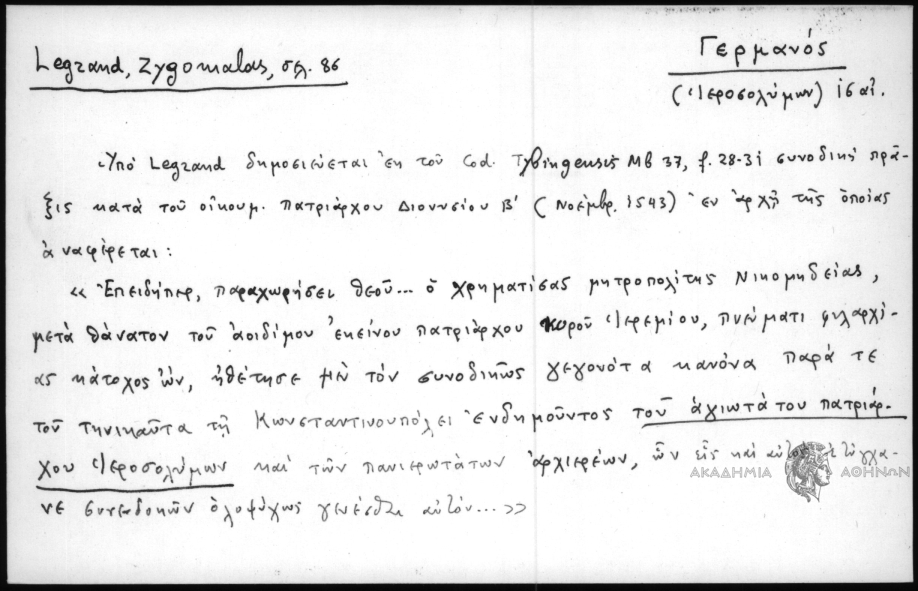 Legrand, Zygomalas, σελ. 86
Γερμανός
(Ἱεροσολύμων) ιςʹ αἰ.
Ὑπὸ Legrand δημοσιεύεται ἐκ τοῦ Cod. Tybingensis Mb 37, f. 28-31 συνοδικὴ πρᾶ-
ξις κατὰ τοῦ οἰκουμ. πατριάρχου Διονυσίου Β' (Νοέμβρ. 1543) ἐν ἀρχῇ τῆς ὁποίας
ἀναφέρεται:
«Ἐπειδήπερ, παραχωρήσει θεοῦ... ὁ χρηματίσας μητροπολίτης Νικομηδείας,
μετὰ θάνατον τοῦ ἀοιδίμου ἐκείνου πατριάρχου κυροῦ Ἱερεμίου, πνεύματι φιλαρχί-
ας κάτοχος ὤν, ἠθέτησε μὲν τὸν συνοδικῶς γεγονότα κανόνα παρά τε
τοῦ τηνικαῦτα τῇ Κωνσταντινουπόλει ἐνδημοῦντος τοῦ ἁγιωτάτου πατριάρ-
χου Ἱεροσολύμων καὶ τῶν πανιερωτάτων ἀρχιερέων, ὧν εἷς καὶ αὐτὸς ἐτύγχα-
νε συνευδοκῶν ὁλοψύχως γενέσθαι αὐτόν...»
ΑΚΑΔΗΜΙΑ ΑΘΗΝΩΝ